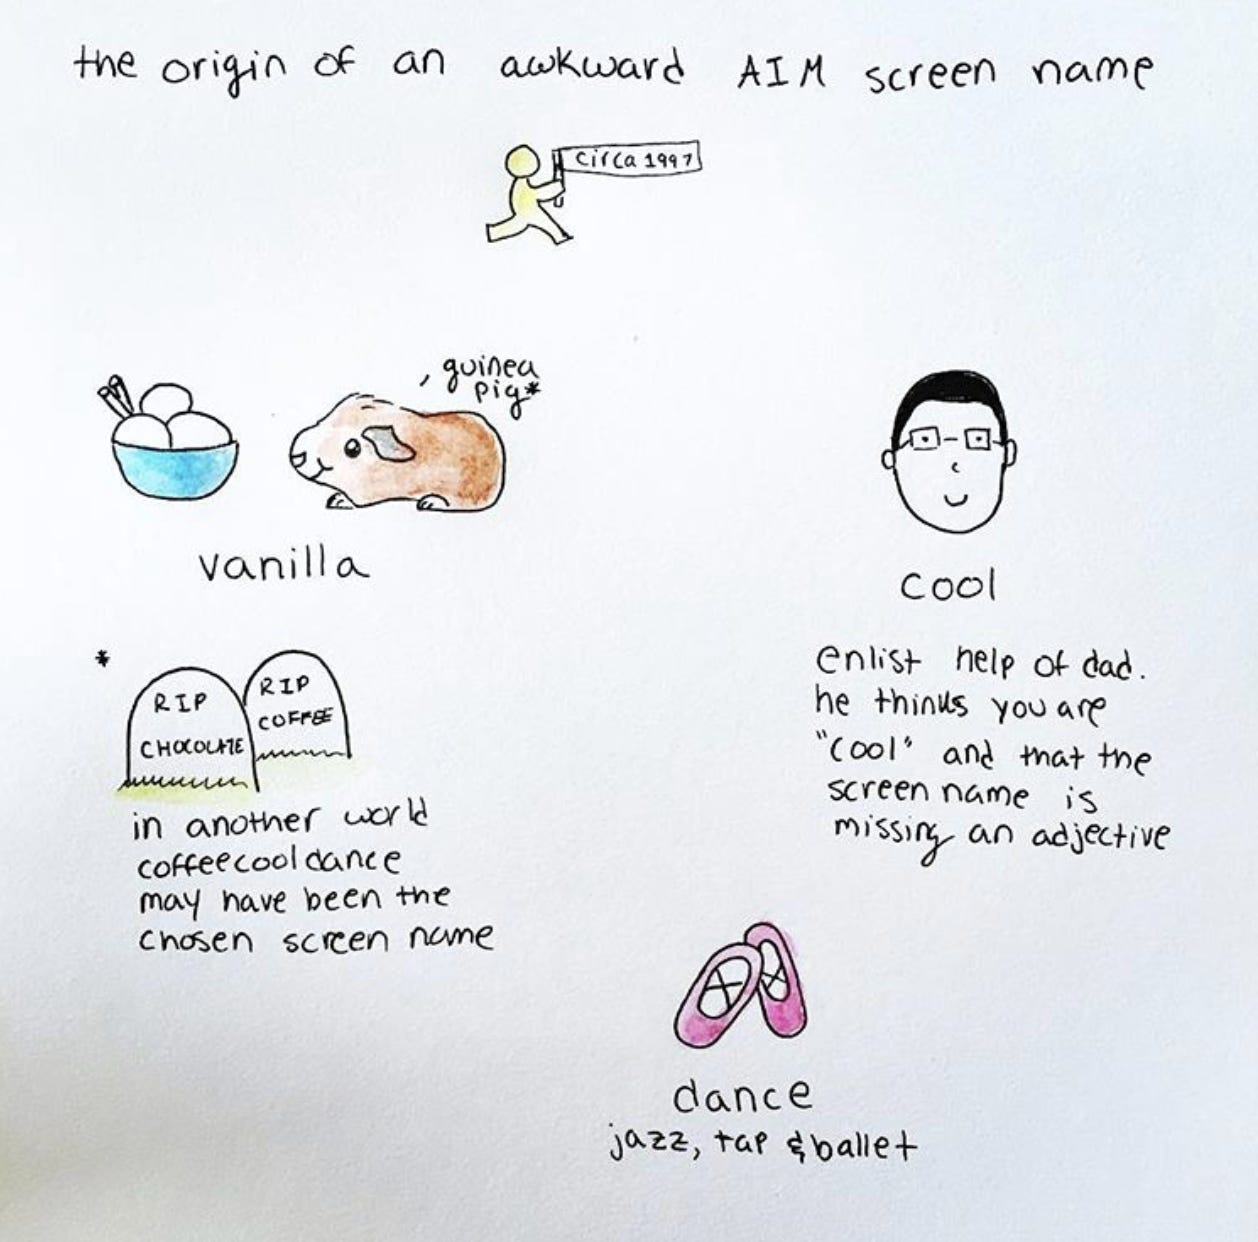 the origin of an awkward AIM screen name
circa 1997
, guinea
pig*
vanilla
*
RIP
CHOCOLATE
RIP
COFFEE
in another world
coffeecooldance
may have been the
chosen screen name
cool
enlist help of dad.
he thinks you are
"cool" and that the
screen name is
missing an adjective
dance
jazz, tap & ballet